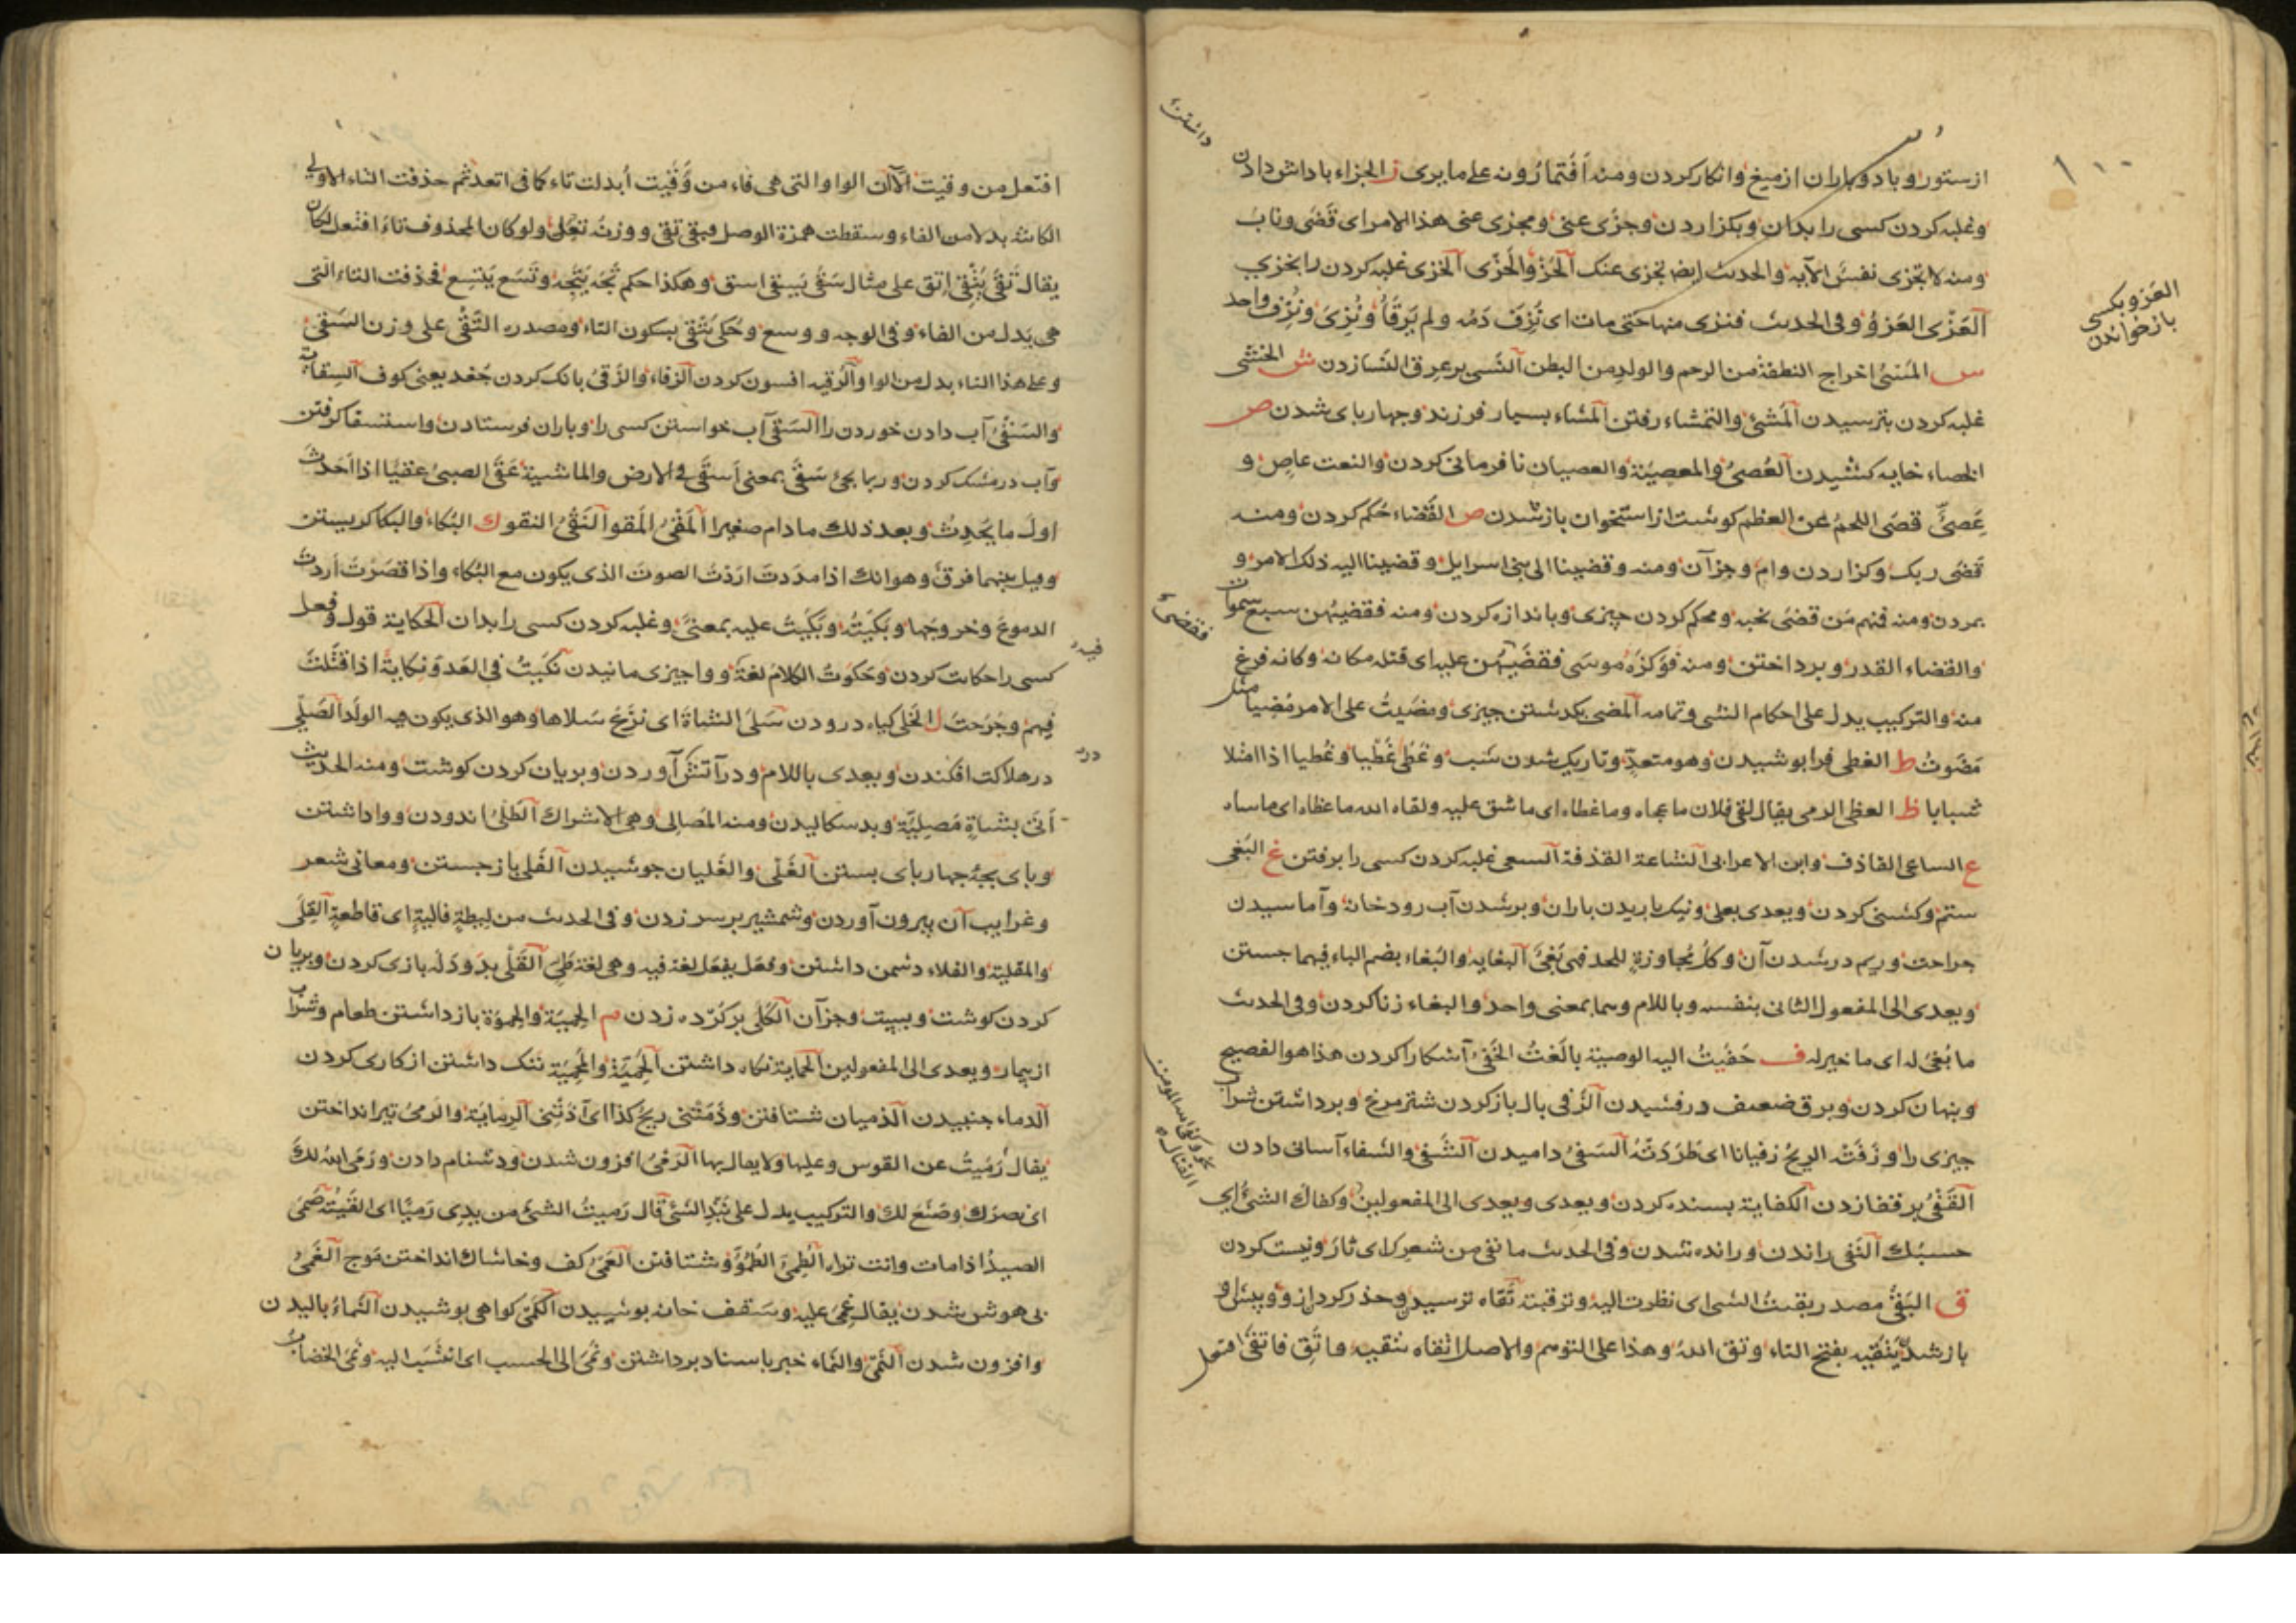 از ستور و باد و باران از میغ و انکار کردن ومنه أفَتُمارُونه على ما يرى ز الجزاء پاداش دادن
وغلبه کردن کسی را بدان و بکزاردن وجزى عنى ومجزى عنى هذا الامر اى قضى وناب
ومنه لا تجزى نفس الآيه والحديث تجزى عنك الخزو والخزى الخزى غلبه کردن را بخزی
العَزْى العَزْوُ وفى الحديث فنزى منها حتى مات اى نُزِفَ دَمُه ولم يَرقَأُ ونُزِىَ ونُزِف واحد
س المَسْىُ اخراج النطفة من الرحم والولد من البطن النَّسى بر عرق النَّسا زدن ش الخشى
غلبه کردن بترسیدن المَشْىُ والتمشاء رفتن المشاء بسیار فرزند وچهارپای شدن ص
الخصاء خایه کشیدن العُصىُ والمعصيَة والعصيان نافرمانی کردن والنعت عاصٍ و
عَصىٌّ قصَى اللحمُ عن العظم کوشت از استخوان باز شدن ض القَضاء حُکم کردن ومنه
قَضى ربك وکزاردن وام وجز آن ومنه وقضينا الى بنى اسرايل وقضينا اليه ذلك الامر و
بمردن ومنه فمنهم مَن قضىَ نحبه ومحکم کردن چیزی وباندازه کردن ومنه فقضيهن سبع سموات
والقضاء القدر وبرداختن ومنه فوَكزَهُ موسَى فقضى عليه اى قتله مكانه وكانه فرغ
منه والتركيب يدل على احكام الشى وتمامه المضى بکدشتن چیزی ومضَيتُ على الامر مُضِيا مثل
مَضَوتُ ط الغطى فرا پوشیدن وهو متعدٍّ وتاریک شدن شب وغَطى غَطْيا وغُطيا اذا امتلا
شبابا ظ العظى الرمى يقال لقى فلان ما عجاه وما عظاه اى ما شق عليه ولقاه الله ما عظاه اى ما ساه
ع الساعى القاذف وابن الاعرابى الشاعة القذفة السعى غلبه کردن کسی را برفتن غ البَغى
ستم و کشنی کردن ويعدى بعلى ونیک باریدن باران وبر شدن آب رودخانه وآماسیدن
جراحت وریم در شدن آن وكلُّ مُجاوزةٍ للحد فهى بَغىٌ البغايه والبُغاء بضم الباء فيهما جستن
ويعدى الى المفعول الثانى بنفسه وباللام وهما بمعنى واحد والبغاء زنا کردن وفى الحديث
ما بُغىَ له اى ما خير له ف خَفَيتُ اليه الوصية بالَغتُ الخَفىُ آشکارا کردن هذا هو الفصيح
وپنهان کردن وبرق ضعیف درفشیدن الزَّفى بال باز کردن شتر مرغ وبرداشتن شراب
چیزی را وزَفَتْه الريحُ زفيانا اى طَرَدَتْهُ السَفىُ دامیدن الشَفى والشفاء آسانی دادن
القَفْىُ بر قفا زدن الكفاية بسنده کردن ويعدى ويعدى الى المفعولين وكفاك الشىُ اى
حسبُك النَفى راندن ورانده شدن وفى الحديث ما نفى من شعرك اى ثارَ ونیست کردن
ق البَقْىُ مصدر بقيتُ الشى اى نظرت اليه وترقبته تُقاه ترسیدن وحذر کردن
يَتْقيه بفتح التاء وتق اللهَ وهذا على التوهم والاصل اتقاه يتقيه فاتقى افتعل
العَزو بکسی
باز خواندن
داشتن
فقضى
افتعل من وقيت الا ان الواو التى هى فاء من وَقَيت أبدلت تاء كما فى اتعد ثم حذفت التاء الاولى
الكائنة بدلا من الفاء وسقطت همزة الوصل فبقى تقى ووزنه تعل ولو كان المحذوف تاءَ افتعل لكان
يقال تَقَى يَتْقى اِتق على مثال سَقَى يَسقى اسق وهكذا حكم تَجَه يَتَجِه وتَسَع يَتسِع فحذفت التاء التى
هى بَدل من الفاء وفى الوجه ووسع وحُكى يَتْقى بسكون التاء ومصدره التَّقْى على وزن السَقى
وعلى هذا التاء بدل من الواو الرُقيه افسون کردن الزقاء والزَقىُ بانک کردن جُغد يعنى کوف السِقاية
والسَقْىُ آب دادن خوردن را السَقى آب خواستن کسی را وباران فرستادن واستسقا کرفتن
وآب در مشک کردن وربما يجئ سَقَى بمعنى أسقَى فى الارض والماشية عَقَى الصبىُ عقيًا اذا احَدث
اولَ ما يَحدِثُ وبعد ذلك ما دام صغيرا المَقْىُ المَقو النَقْىُ النقو ك البُكاء والبكا کریستن
وقيل بينهما فرق وهو انك اذا مدَدتَ ارَدْتَ الصوت الذى يكون مع البُكاء واذا قصَرْتَ اَردتَ
الدموعَ وخروجَها وبَكَيتُه وبَكَيتُ عليه بمعنىً وغلبه کردن کسی را بدان الحكاية قول وفعل
کسی را حکایت کردن وحَكَوتُ الكلام لغة وواچیزی مانیدن نَكَيتُ فى العَدو نِكايةً اذا قتَلتَ
فيهم وجَرَحتَ ل الخَلى کیاه درودن سَلَى الشاةَ اى نزَع سَلاها وهو الذى يكون فيه الولد الصَلى
در هلاکت افکندن ويعدى باللام ودر آتش آوردن وبریان کردن کوشت ومنه الحديث
أتى بشاةٍ مَصلِيَّة وبد سکالیدن ومنه المَصالى وهى الاشراك الطَلْىُ اندودن وواداشتن
وپای بچه چهارپای بستن الغَلْى والغَليان جوشیدن الفَلى باز جستن ومعانی شعر
وغرایب آن بیرون آوردن وشمشیر بر سر زدن وفى الحديث من ليطةٍ فاليةٍ اى قاطعةٍ القِلَى
والمَقلية والقلاء دشمن داشتن وفعَل يفعَل لغة فيه وهى لغة طَىّ القَلْى بدَودَلَه بازی کردن وبریان
کردن کوشت وبیت وجز آن الكَلى بر کُرده زدن م الحِميَة والحِموَة باز داشتن طعام وشراب
از بیمار ويعدى الى المفعولين الحِماية نکاه داشتن الحَمِيَّة والمَحمِيَة ننک داشتن از کاری کردن
الدماء جنبیدن الذميان شتافتن وذَمَتْنى ريحُ كذا اى آذَتْنِى الرِماية والرَمىُ تیر انداختن
يقال رَمَيتُ عن القوس وعليها ولا يقال بها الرَمْىُ افزون شدن ودشنام دادن ورَمَى اللهُ لكَ
اى نصرَك وصَنَع لك والتركيب يدل على نَبْذِ الشئ قال رَميتُ الشئَ من يدى رَميًا اى القَيتُه صَمَى
الصيدُ اذا مات وانت تراه الطَمىُ الطُمُوّ شتافتن العَمْىُ کف وخاشاک انداختن موج الغَمْىُ
بی هوش شدن يقال غُمِىَ عليه وسَقف خانه پوشیدن الكَمْىُ کواهی پوشیدن النَّماءُ بالیدن
وافزون شدن النَمْىُ والنَماء خبر باسناد برداشتن ونُمىَ الى الحسب اى انتسَب اليه ونَمىَ الخضاب
فيه